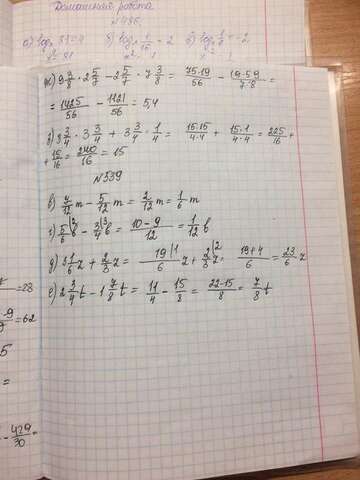 Домашняя работа
№486
ж) 9 3/8 · 2 5/7 − 2 5/7 · 7 3/8 = 75·19/56 − 19·59/7·8 =
= 1425/56 − 1121/56 = 5,4
з) 3 3/4 · 3 3/4 + 3 3/4 · 1/4 = 15·15/4·4 + 15·1/4·4 = 225/16 +
+ 15/16 = 240/16 = 15
№539
в) 7/12 m − 5/12 m = 2/12 m = 1/6 m
г) 5/6 b − 3/4 b = 10−9/12 = 1/12 b
д) 3 1/6 z + 2/3 z = 19/6 z + 2/3 z = 19+4/6 = 23/6 z
е) 2 3/4 t − 1 7/8 t = 11/4 − 15/8 = 22−15/8 = 7/8 t
=23
=62
5
=
− 429/30 =